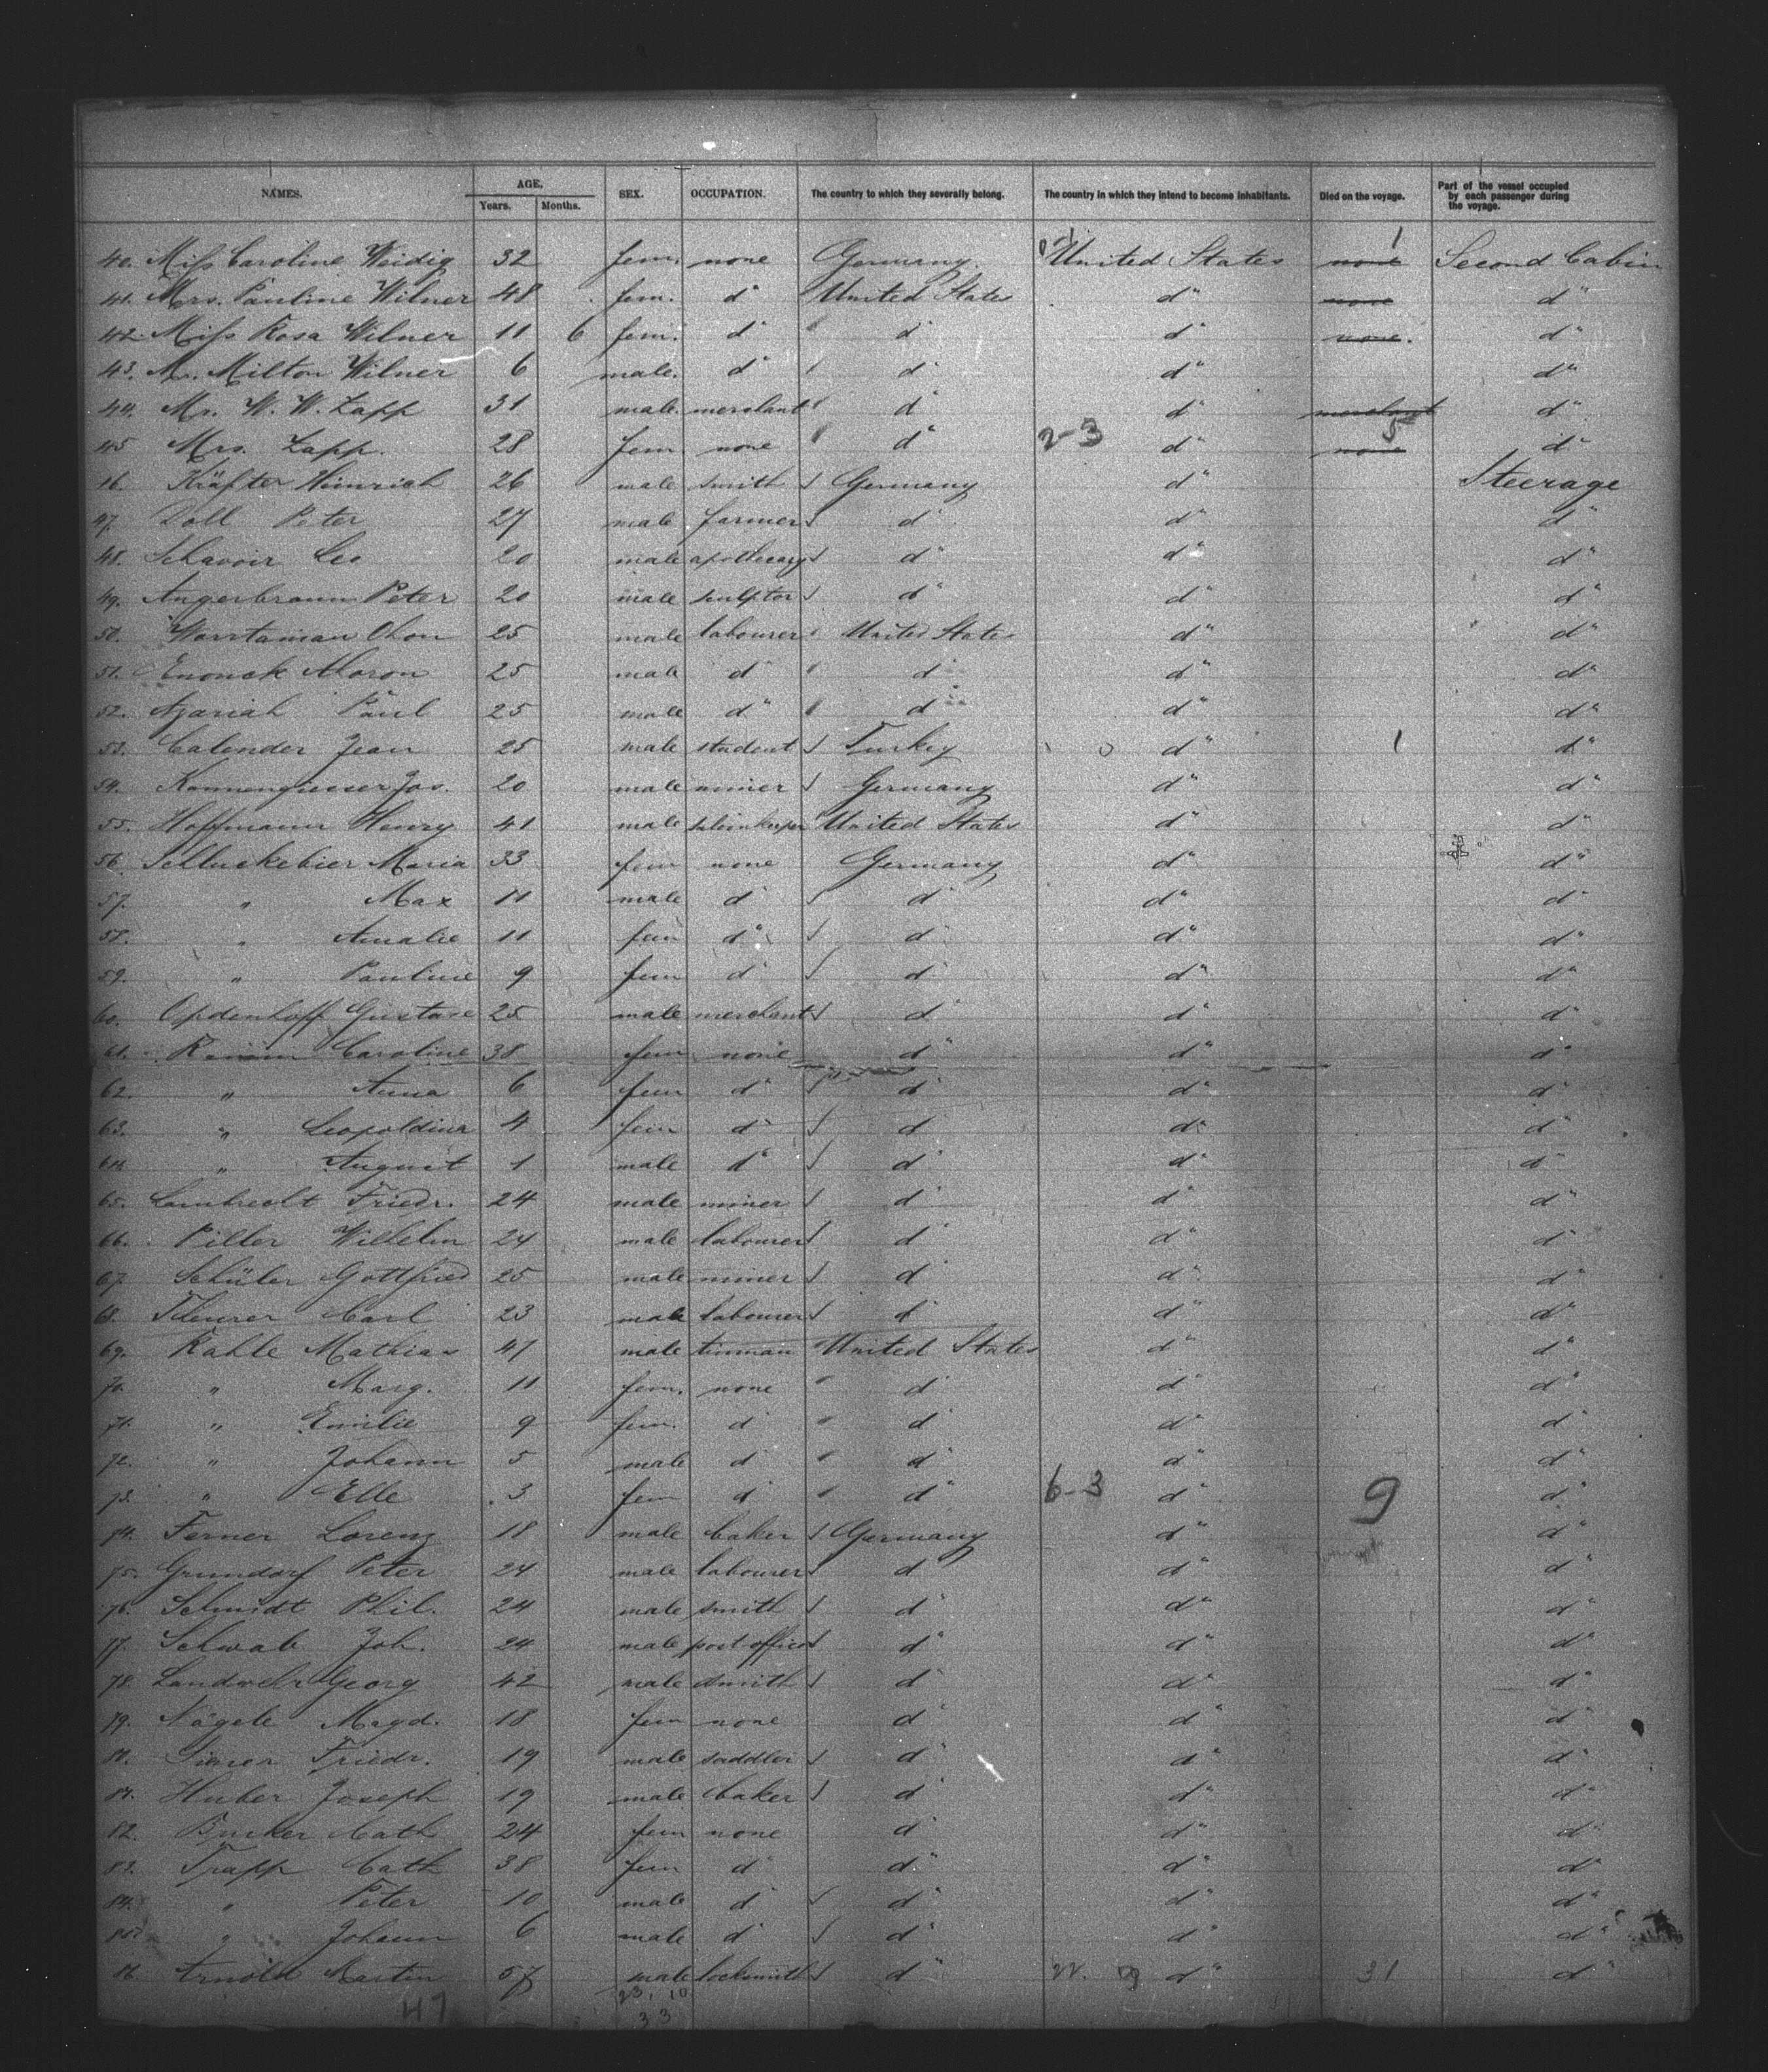 NAMES. AGE, SEX. OCCUPATION. The country to which they severally belong. The country in which they intend to become inhabitants. Died on the voyage. Part of the vessel occupied by each passenger during the voyage.
Years. Months.
1
40. Miss Caroline Weidig 32 fem. none Germany. United States none Second Cabin
41. Mrs. Pauline Wilner 48 fem. d° United States d° none d°
42. Miss Rosa Wilner 11 6 fem. d° d° d° none. d°
43. Mr. Milton Wilner 6 male. d° d° d° d°
44. Mr. W. W. Zapp 31 male. merchant d° d° merchant d°
45 Mrs. Zapp. 28 fem none d° 2-3 d° none 5 d°
46. Kräfter Heinrich 26 male smith Germany d° Steerage
47. Doll Peter 27 male farmer d° d° d°
48. Schavoir Leo 20 male apothecary d° d° d°
49. Angerbraun Peter 20 male sculptor d° d° d°
50. Ohon 25 male labourer United States d° d°
51. Enouck Aaron 25 male d° d° d° d°
52. Azariah Paul 25 male d° d° d° d°
53. Calender Jean 25 male student Turkey 0 d° 1 d°
54. Jos. 20 male miner Germany d° d°
55. Hoffmann Henry 41 male United States d° d°
56. Schluckebier Maria 33 fem none Germany d° d°
57. " Max 11 male d° d° d° d°
58. " Amalie 11 fem d° d° d° d°
59. " Pauline 9 fem d° d° d° d°
60. Opdenhoff Gustave 25 male merchant d° d° d°
61. Caroline 38 fem none d° d° d°
62. " Anna 6 fem d° d° d° d°
63. " Leopoldina 4 fem d° d° d° d°
64 " August 1 male d° d° d° d°
65. Lambrecht Friedr. 24 male miner d° d° d°
66. Piller Wilhelm 24 male labourer d° d° d°
67. Schüler Gottfried 25 male miner d° d° d°
68. Theurer Carl 23 male labourer d° d° d°
69. Kahle Mathias 41 male tinman United States d° d°
70. " Marg. 11 fem. none d° d° d°
71. " Emilie 9 fem. d° d° d° d°
72. " Johann 5 male d° d° d° d°
73. " Elle 3 fem d° d° 6-3 d° 9 d°
74. Ferner Lorenz 18 male baker Germany d° d°
75. Grundorf Peter 24 male labourer d° d° d°
76. Schmidt Phil. 24 male smith d° d° d°
77. Schwab Joh. 24 male post officer d° d° d°
78. Landwehr Georg 42 male smith d° d° d°
79. Nägele Magd. 18 fem none d° d° d°
80. Friedr. 19 male saddler d° d° d°
81. Huber Joseph 19 male baker d° d° d°
82. Cath 24 fem none d° d° d°
83. Trapp Cath 38 fem d° d° d° d°
84. " Peter 10 male d° d° d° d°
85. " Johann 6 male d° d° d° d°
86. Arnold Martin 57 male locksmith d° d° 31 d°
47 23. 10
33